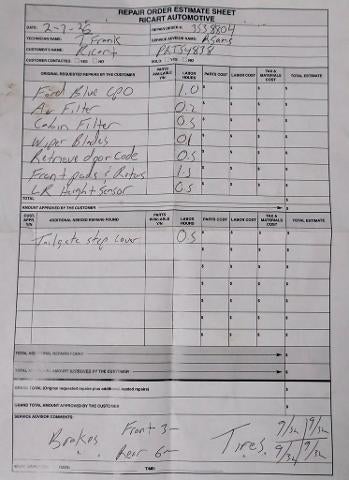 REPAIR ORDER ESTIMATE SHEET
RICART AUTOMOTIVE
DATE: 2-2-26 REPAIR ORDER #: 3538804
TECHNICIAN NAME: J Frank SERVICE ADVISOR NAME: Adams
CUSTOMER'S NAME: Ricart PKJ54838
CUSTOMER CONTACTED: YES NO SOLD: YES NO
ORIGINAL REQUESTED REPAIRS BY THE CUSTOMER PARTS AVAILABLE Y/N LABOR HOURS PARTS COST LABOR COST TAX & MATERIALS COST TOTAL ESTIMATE
Ford Blue CPO 1.0
Air Filter 0.2
Cabin Filter 0.5
Wiper Blades 0.1
Retrieve door Code 0.5
Front pads & Rotors 1.5
LR Height Sensor 0.5
TOTAL
AMOUNT APPROVED BY THE CUSTOMER
CUST. APPR. Y/N ADDITIONAL NEEDED REPAIRS FOUND PARTS AVAILABLE Y/N LABOR HOURS PARTS COST LABOR COST TAX & MATERIALS COST TOTAL ESTIMATE
Tailgate step cover 0.5
TOTAL ADDITIONAL REPAIRS FOUND
TOTAL ADDITIONAL AMOUNT APPROVED BY THE CUSTOMER
GRAND TOTAL (Original requested repairs plus additional needed repairs)
GRAND TOTAL AMOUNT APPROVED BY THE CUSTOMER
SERVICE ADVISOR COMMENTS:
Brakes Front 3- Rear 6- Tires 9/32 9/32 9/32 9/32
DATE: TIME: